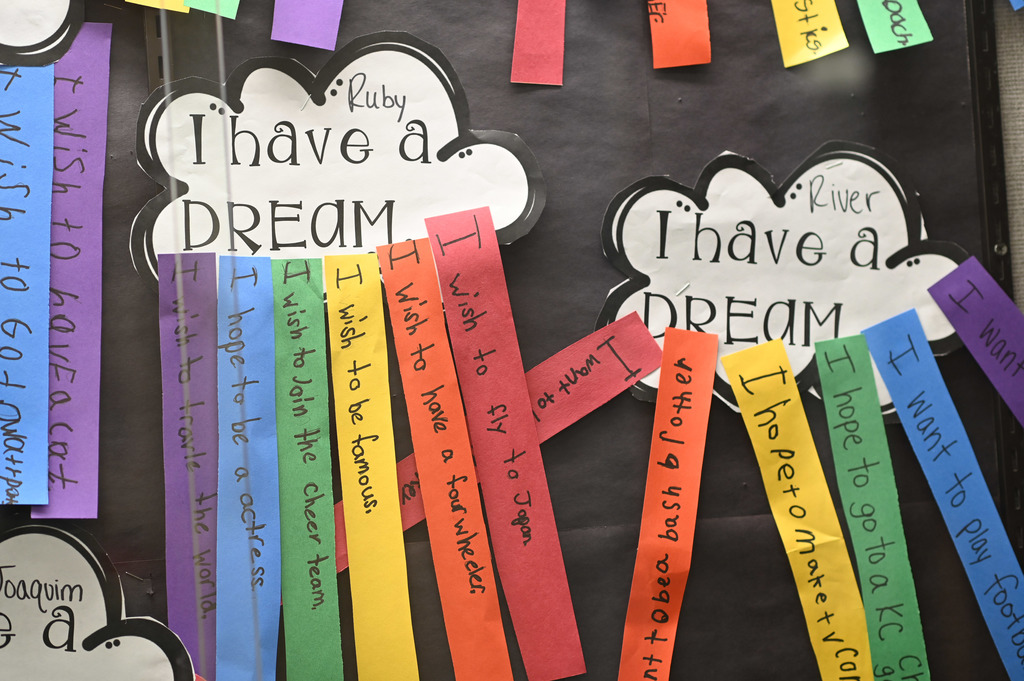 sticks.
coach
I wish to God
I wish to have a cat
Ruby
I have a
DREAM
I wish to travle the world.
I hope to be a actress.
I wish to Join the cheer team.
I wish to be famous.
I wish to have a four wheeler.
I wish to fly to Japan
River
I have a
DREAM
I want to
to be a bash brother
I hope to make tv
I hope to go to a KC
I want to play football
I want
Joaquim
a